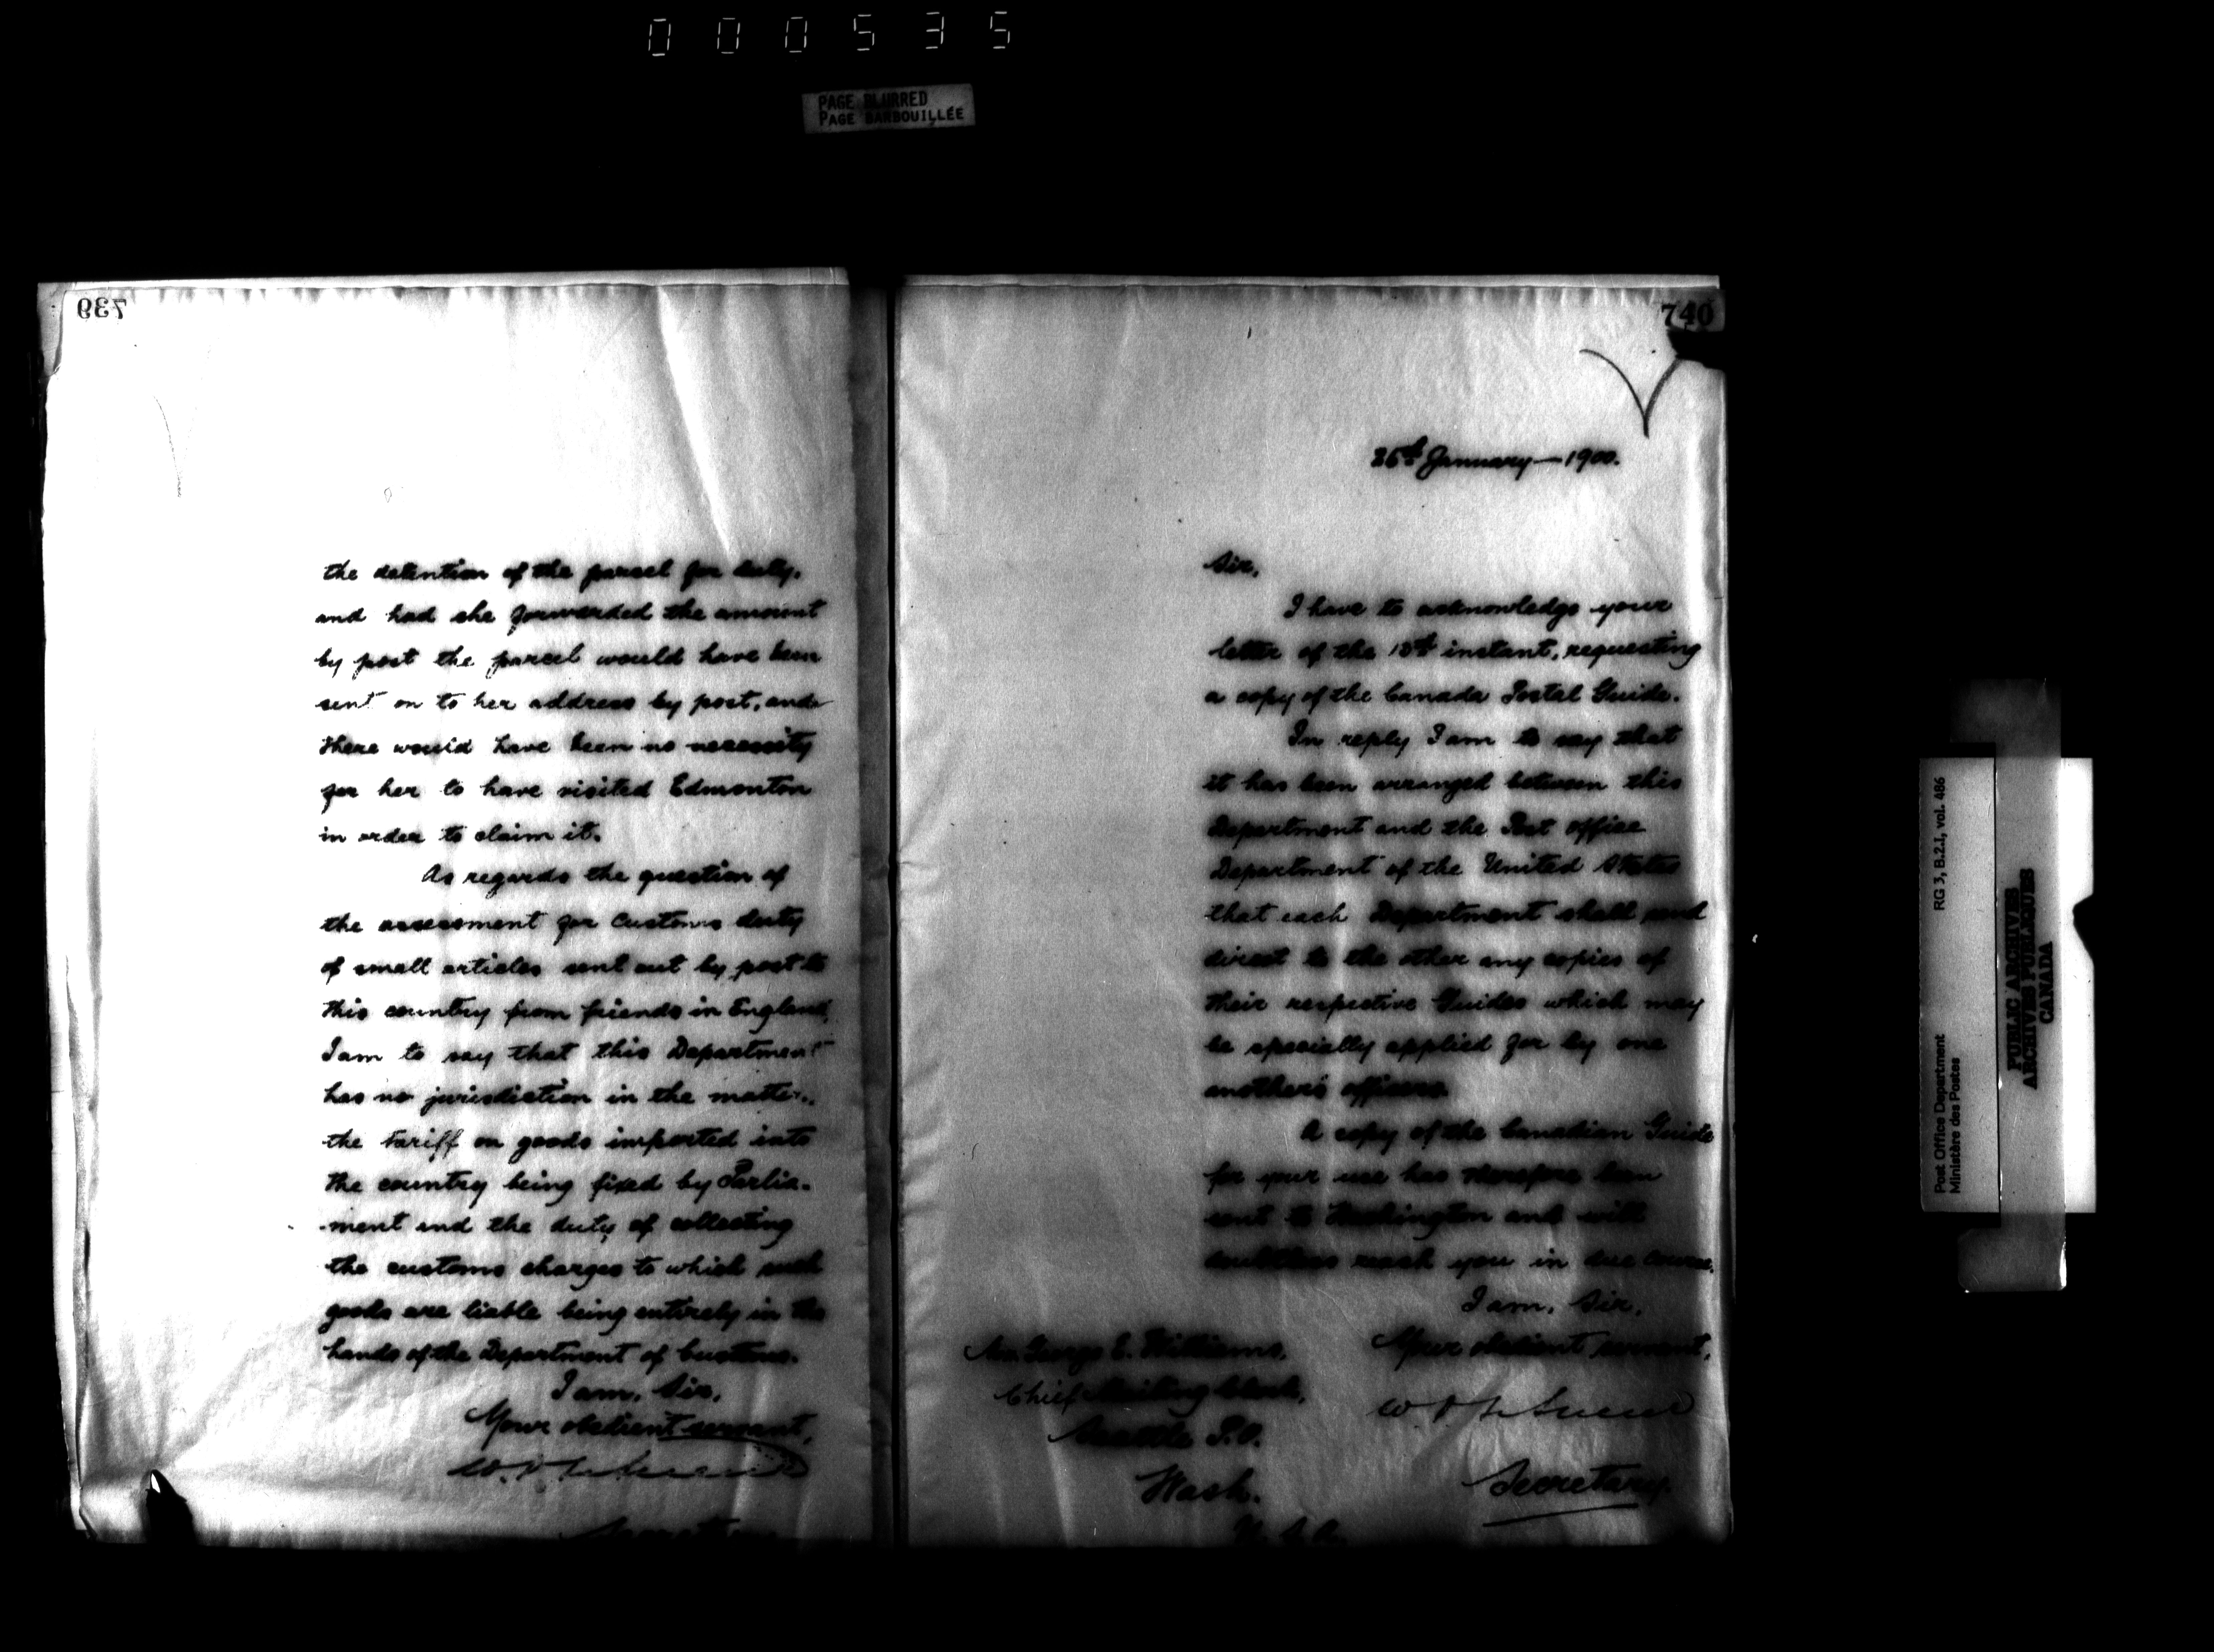 000535
PAGE BLURRED
PAGE BARBOUILLÉE
739
the detention of the parcel for duty.
and had she forwarded the amount
by post the parcel would have been
sent on to her address by post, and
there would have been no necessity
for her to have visited Edmonton
in order to claim it.
As regards the question of
the assessment for Customs duty
of small articles sent out by post to
this country from friends in England,
I am to say that this Department
has no jurisdiction in the matter,
the tariff on goods imported into
the country being fixed by Parlia-
ment and the duty of collecting
the customs charges to which such
goods are liable being entirely in the
hands of the Department of Customs.
I am, Sir,
Your obedient servant,
Secretary
740
January — 1900.
Sir,
I have to acknowledge your
letter of the instant, requesting
a copy of the Canada Postal Guide.
In reply I am to say that
it has been arranged between this
Department and the Post office
Department of the United States
that each Department shall send
direct to the other any copies of
their respective Guides which may
be specially applied for by one
another's officers.
A copy of the Canadian Guide
for your use has therefore been
sent to Washington and will
doubtless reach you in due course.
I am, Sir,
Your obedient servant,
Secretary.
Mr. George E. Williams,
Chief Mailing Clerk,
Seattle P.O.
Wash.
U.S.A.
Post Office Department RG 3, B.2.1, vol. 486
Ministère des Postes
PUBLIC ARCHIVES
ARCHIVES PUBLIQUES
CANADA